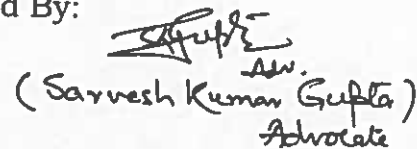 d By:
SKGupta
Adv.
(Sarvesh Kumar Gupta)
Advocate